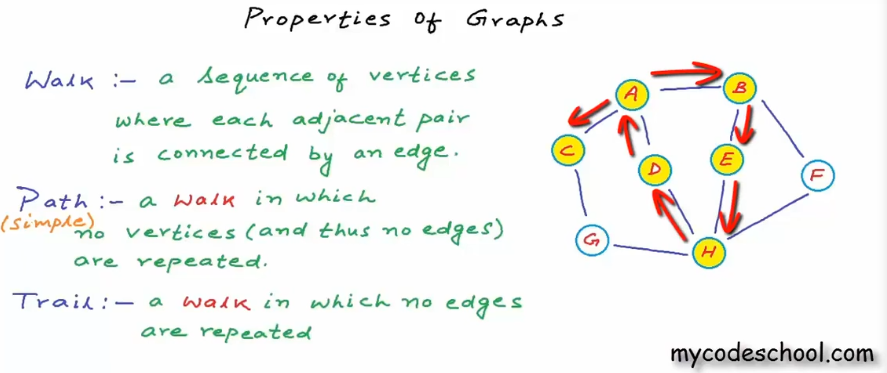 Properties of Graphs
Walk :- a sequence of vertices
where each adjacent pair
is connected by an edge.
Path :- a walk in which
(simple)
no vertices (and thus no edges)
are repeated.
Trail :- a walk in which no edges
are repeated
A
B
C
D
E
F
G
H
mycodeschool.com